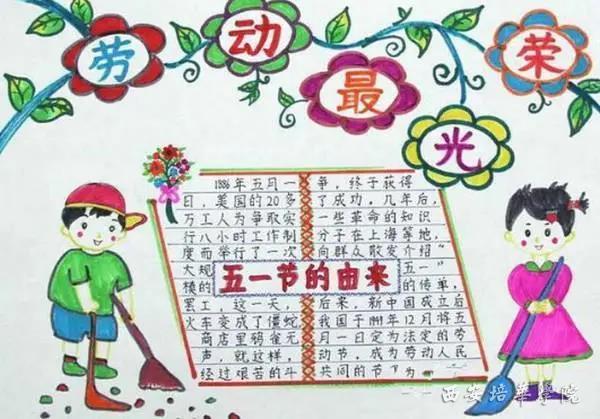 劳动最光荣
1886年五月一
日，美国的20多
万工人为争取实
行八小时工作制
度而举行了一次
大规
模的
罢工，这一天，
火车变成了僵蛇
商店里鸦雀无
声，就这样，
经过艰苦的斗
争，终于获得
了成功，几年后，
一些革命的知识
分子在上海等地，
向群众散发介绍“
五一”
的传单，
后来，新中国成立后
我国于1949年12月将五
月一日定为法定的劳
动节，成为劳动人民
共同的节
五一节的由来
西安培华学院